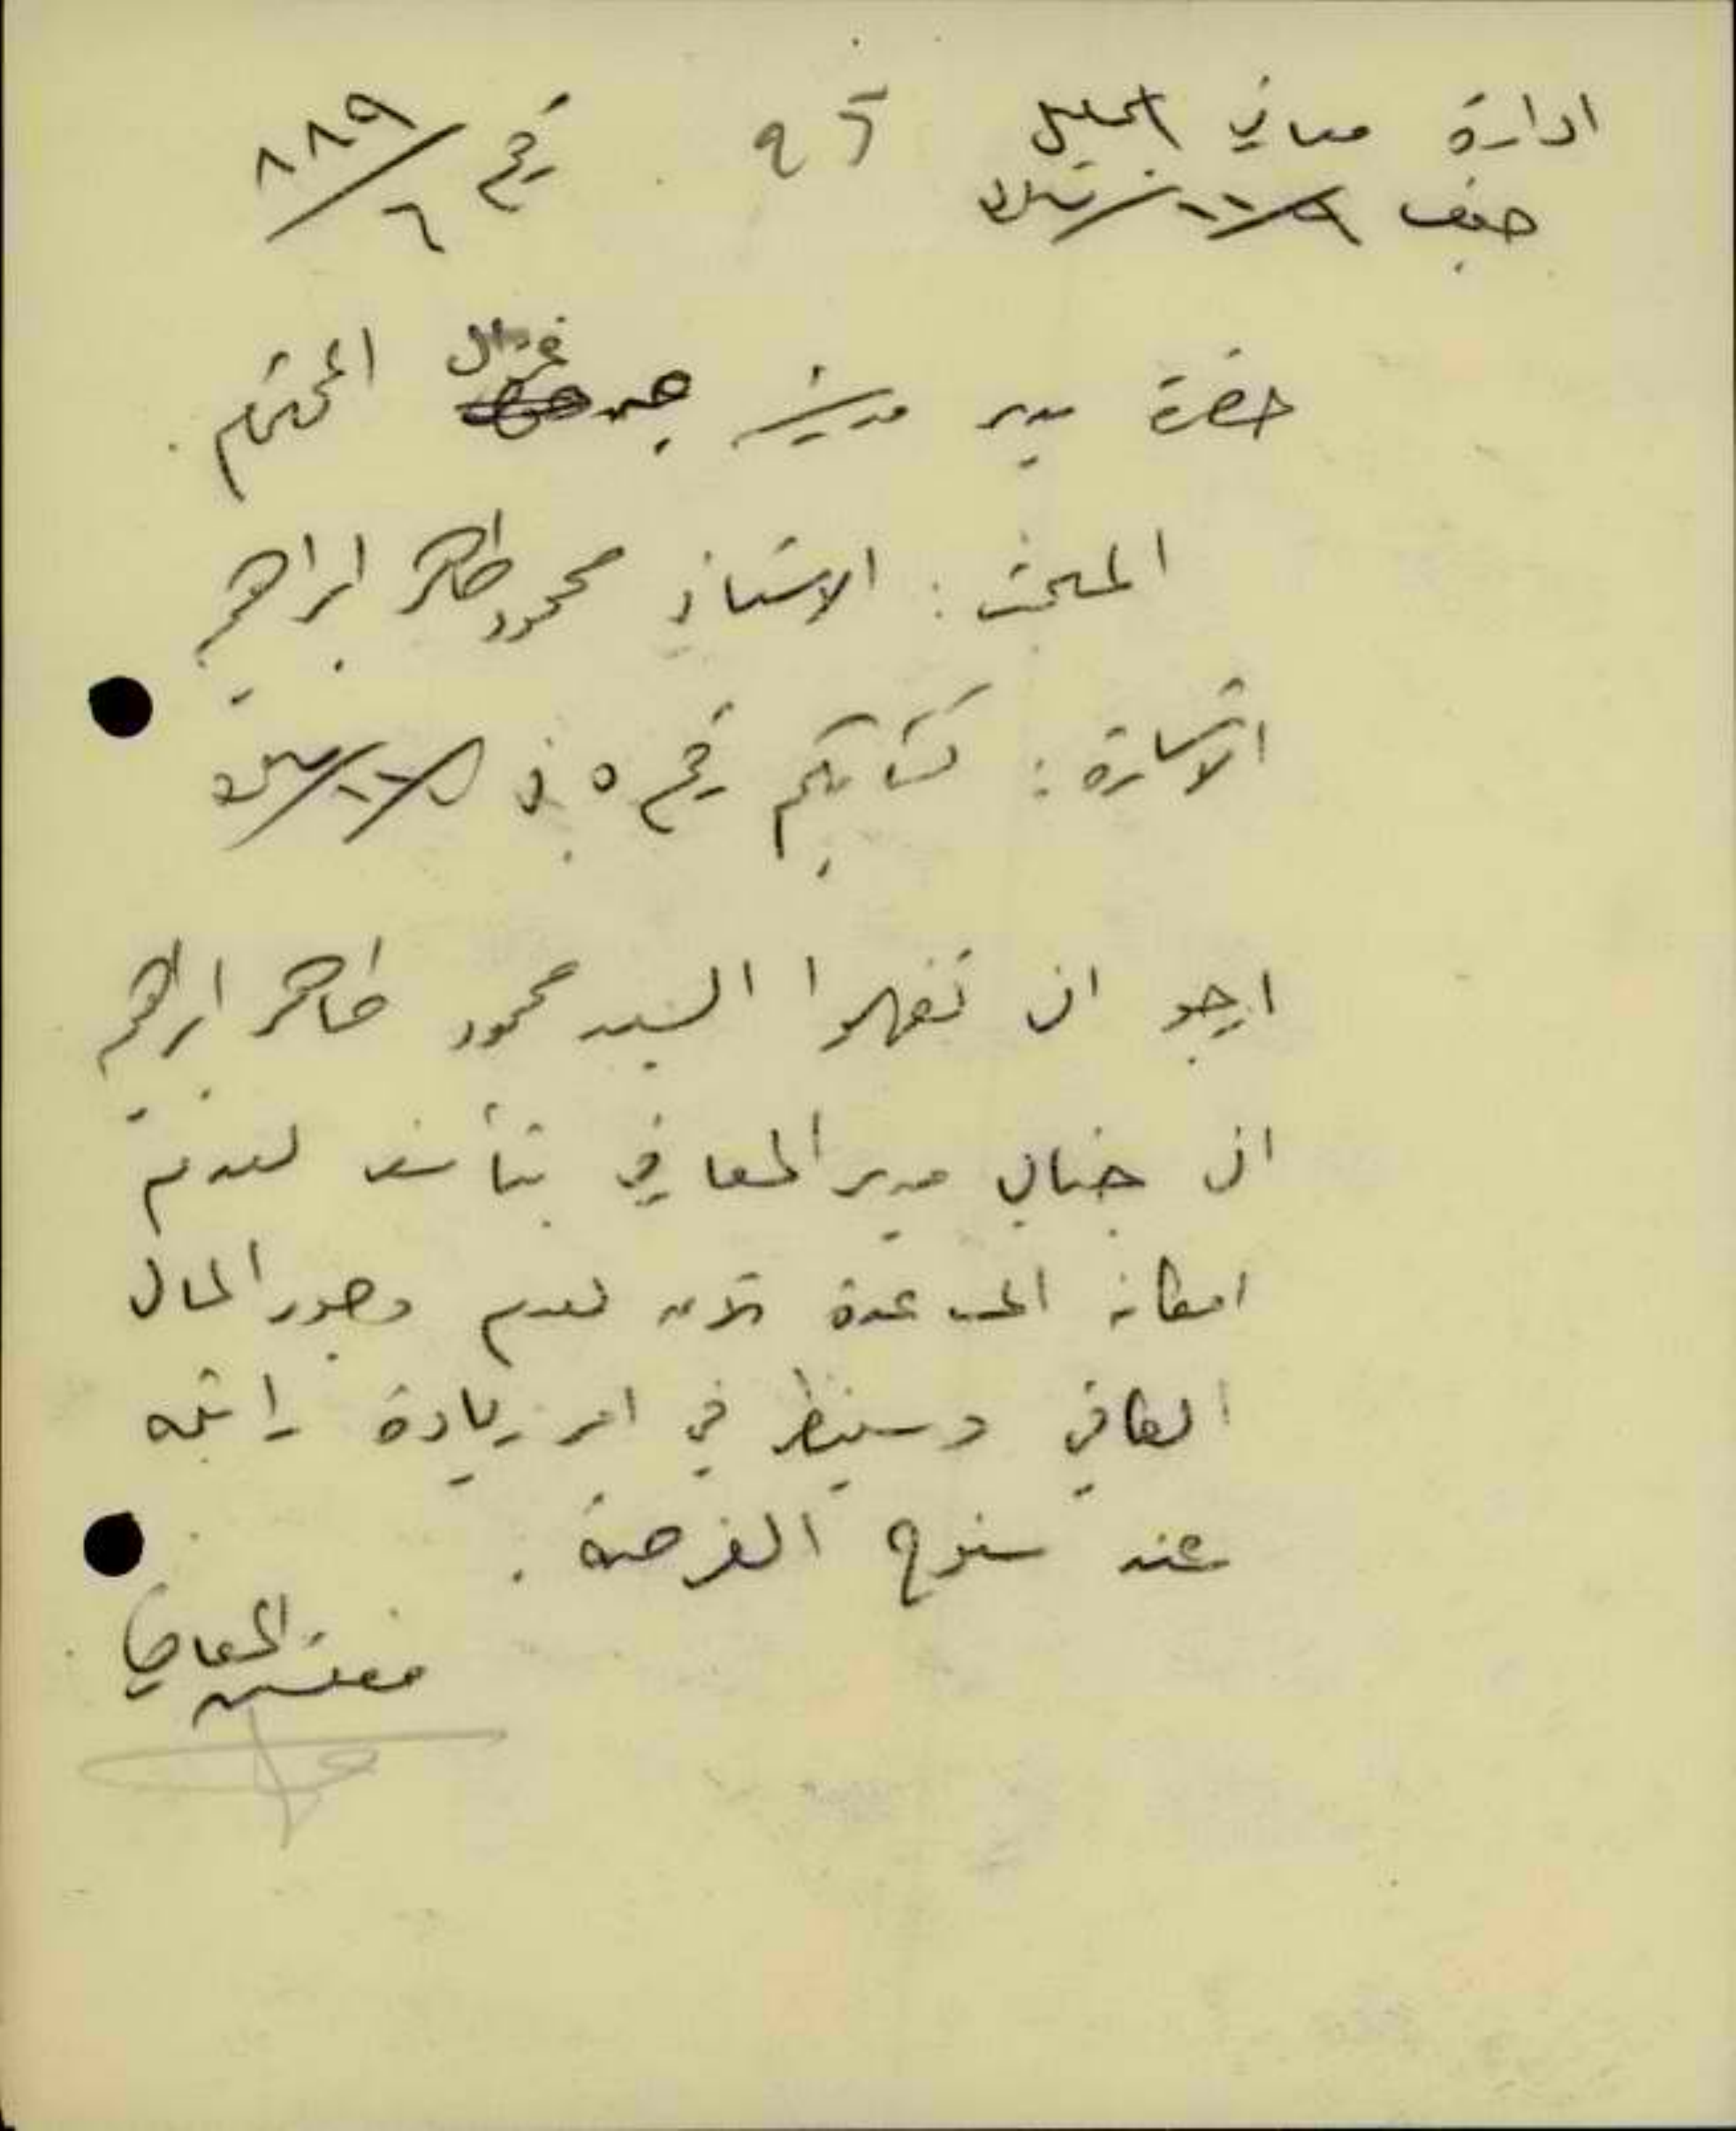 ادارة معارف الجليل ٩٥ رقم ٨٨٩/٦
حضرة مدير مدرسة المحترم
المبحث : الاستاذ محمود طاهر ابراهيم
الاشارة : كتابكم رقم ٥ في
ارجو ان تفهموا السيد محمود طاهر ابراهيم
ان جناب مدير المعارف يتأسف لعدم
امكانه المساعدة الآن لعدم وجود المال
الكافي وسينظر في امر زيادة راتبه
عند سنوح الفرصة .
مفتش المعارف